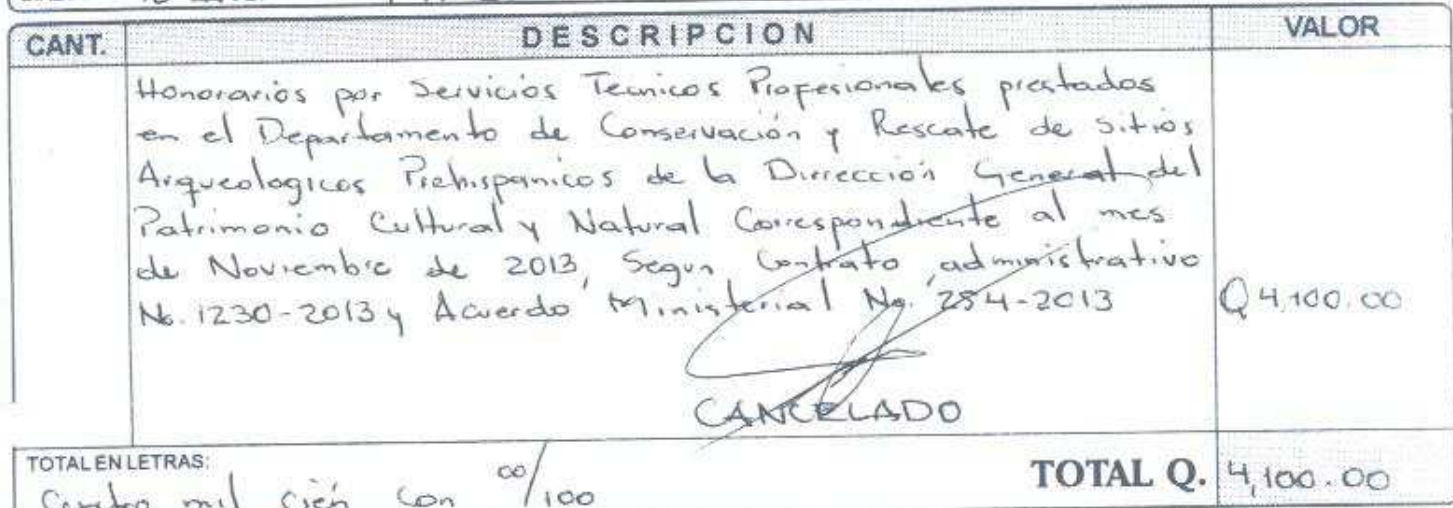 CANT. DESCRIPCION VALOR
Honorarios por Servicios Tecnicos Profesionales prestados
en el Departamento de Conservación y Rescate de Sitios
Arqueologicos Prehispanicos de la Dirección General del
Patrimonio Cultural y Natural Correspondiente al mes
de Noviembre de 2013, Segun Contrato administrativo
No. 1230-2013 y Acuerdo Ministerial No. 254-2013 Q 4,100.00
CANCELADO
TOTAL EN LETRAS:
Cuatro mil cién con 00/100 TOTAL Q. 4,100.00